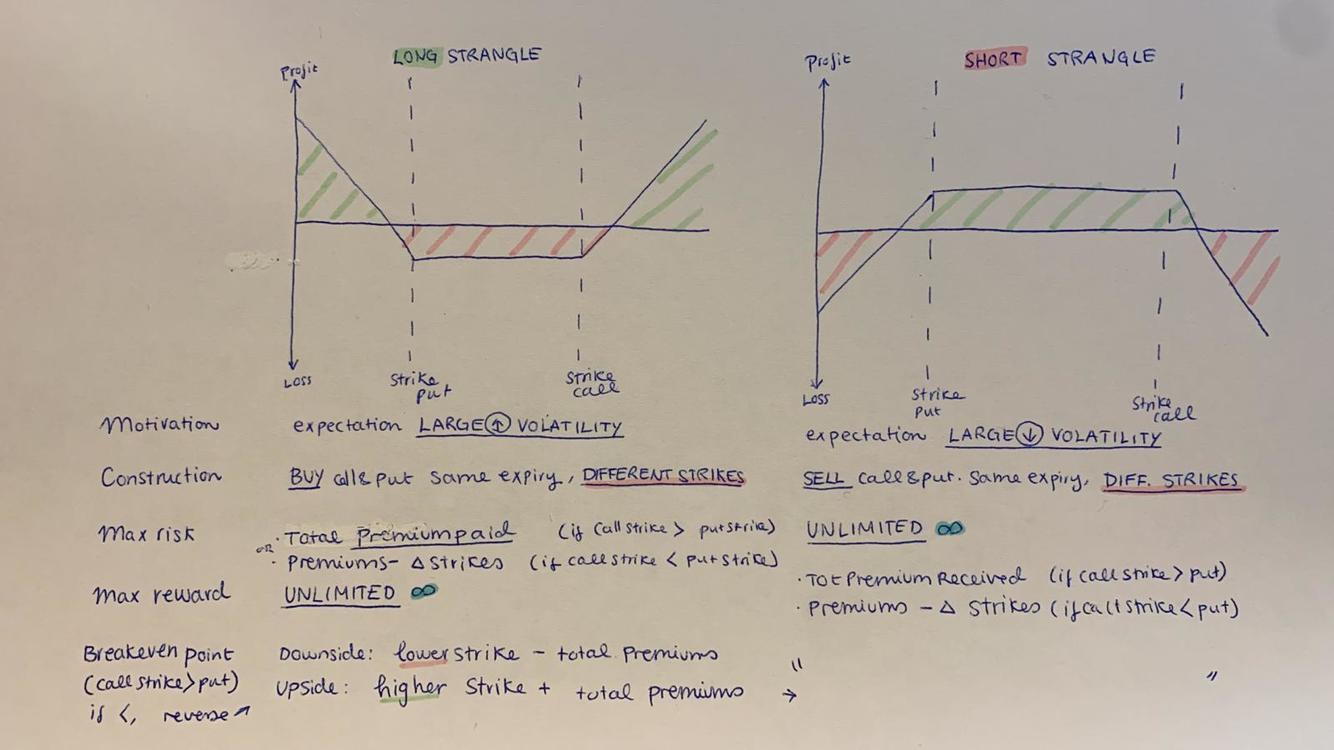 LONG STRANGLE
Profit
Loss
Strike put
Strike call
SHORT STRANGLE
Profit
Loss
Strike put
Strike call
Motivation
expectation LARGE ↑ VOLATILITY
expectation LARGE ↓ VOLATILITY
Construction
BUY call & put same expiry, DIFFERENT STRIKES
SELL call & put. Same expiry, DIFF. STRIKES
Max risk
· Total Premium paid (if call strike > put strike)
OR · Premiums - Δ strikes (if call strike < put strike)
UNLIMITED ∞
Max reward
UNLIMITED ∞
· Tot Premium Received (if call strike > put)
· Premiums - Δ Strikes (if call strike < put)
Breakeven point
(call strike > put)
if <, reverse ↗
Downside: lower strike - total premiums
Upside: higher strike + total premiums
"
→
"